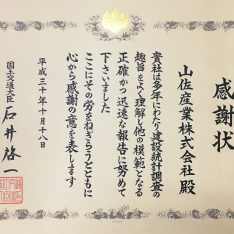 感謝状
山佐産業株式会社 殿
貴社は多年にわたり建設統計調査の
趣旨をよく理解し他の模範となる
正確かつ迅速な報告に努めて
下さいました
ここにその労をねぎらうとともに
心から感謝の意を表します
平成三十年十月十八日
国土交通大臣 石井啓一